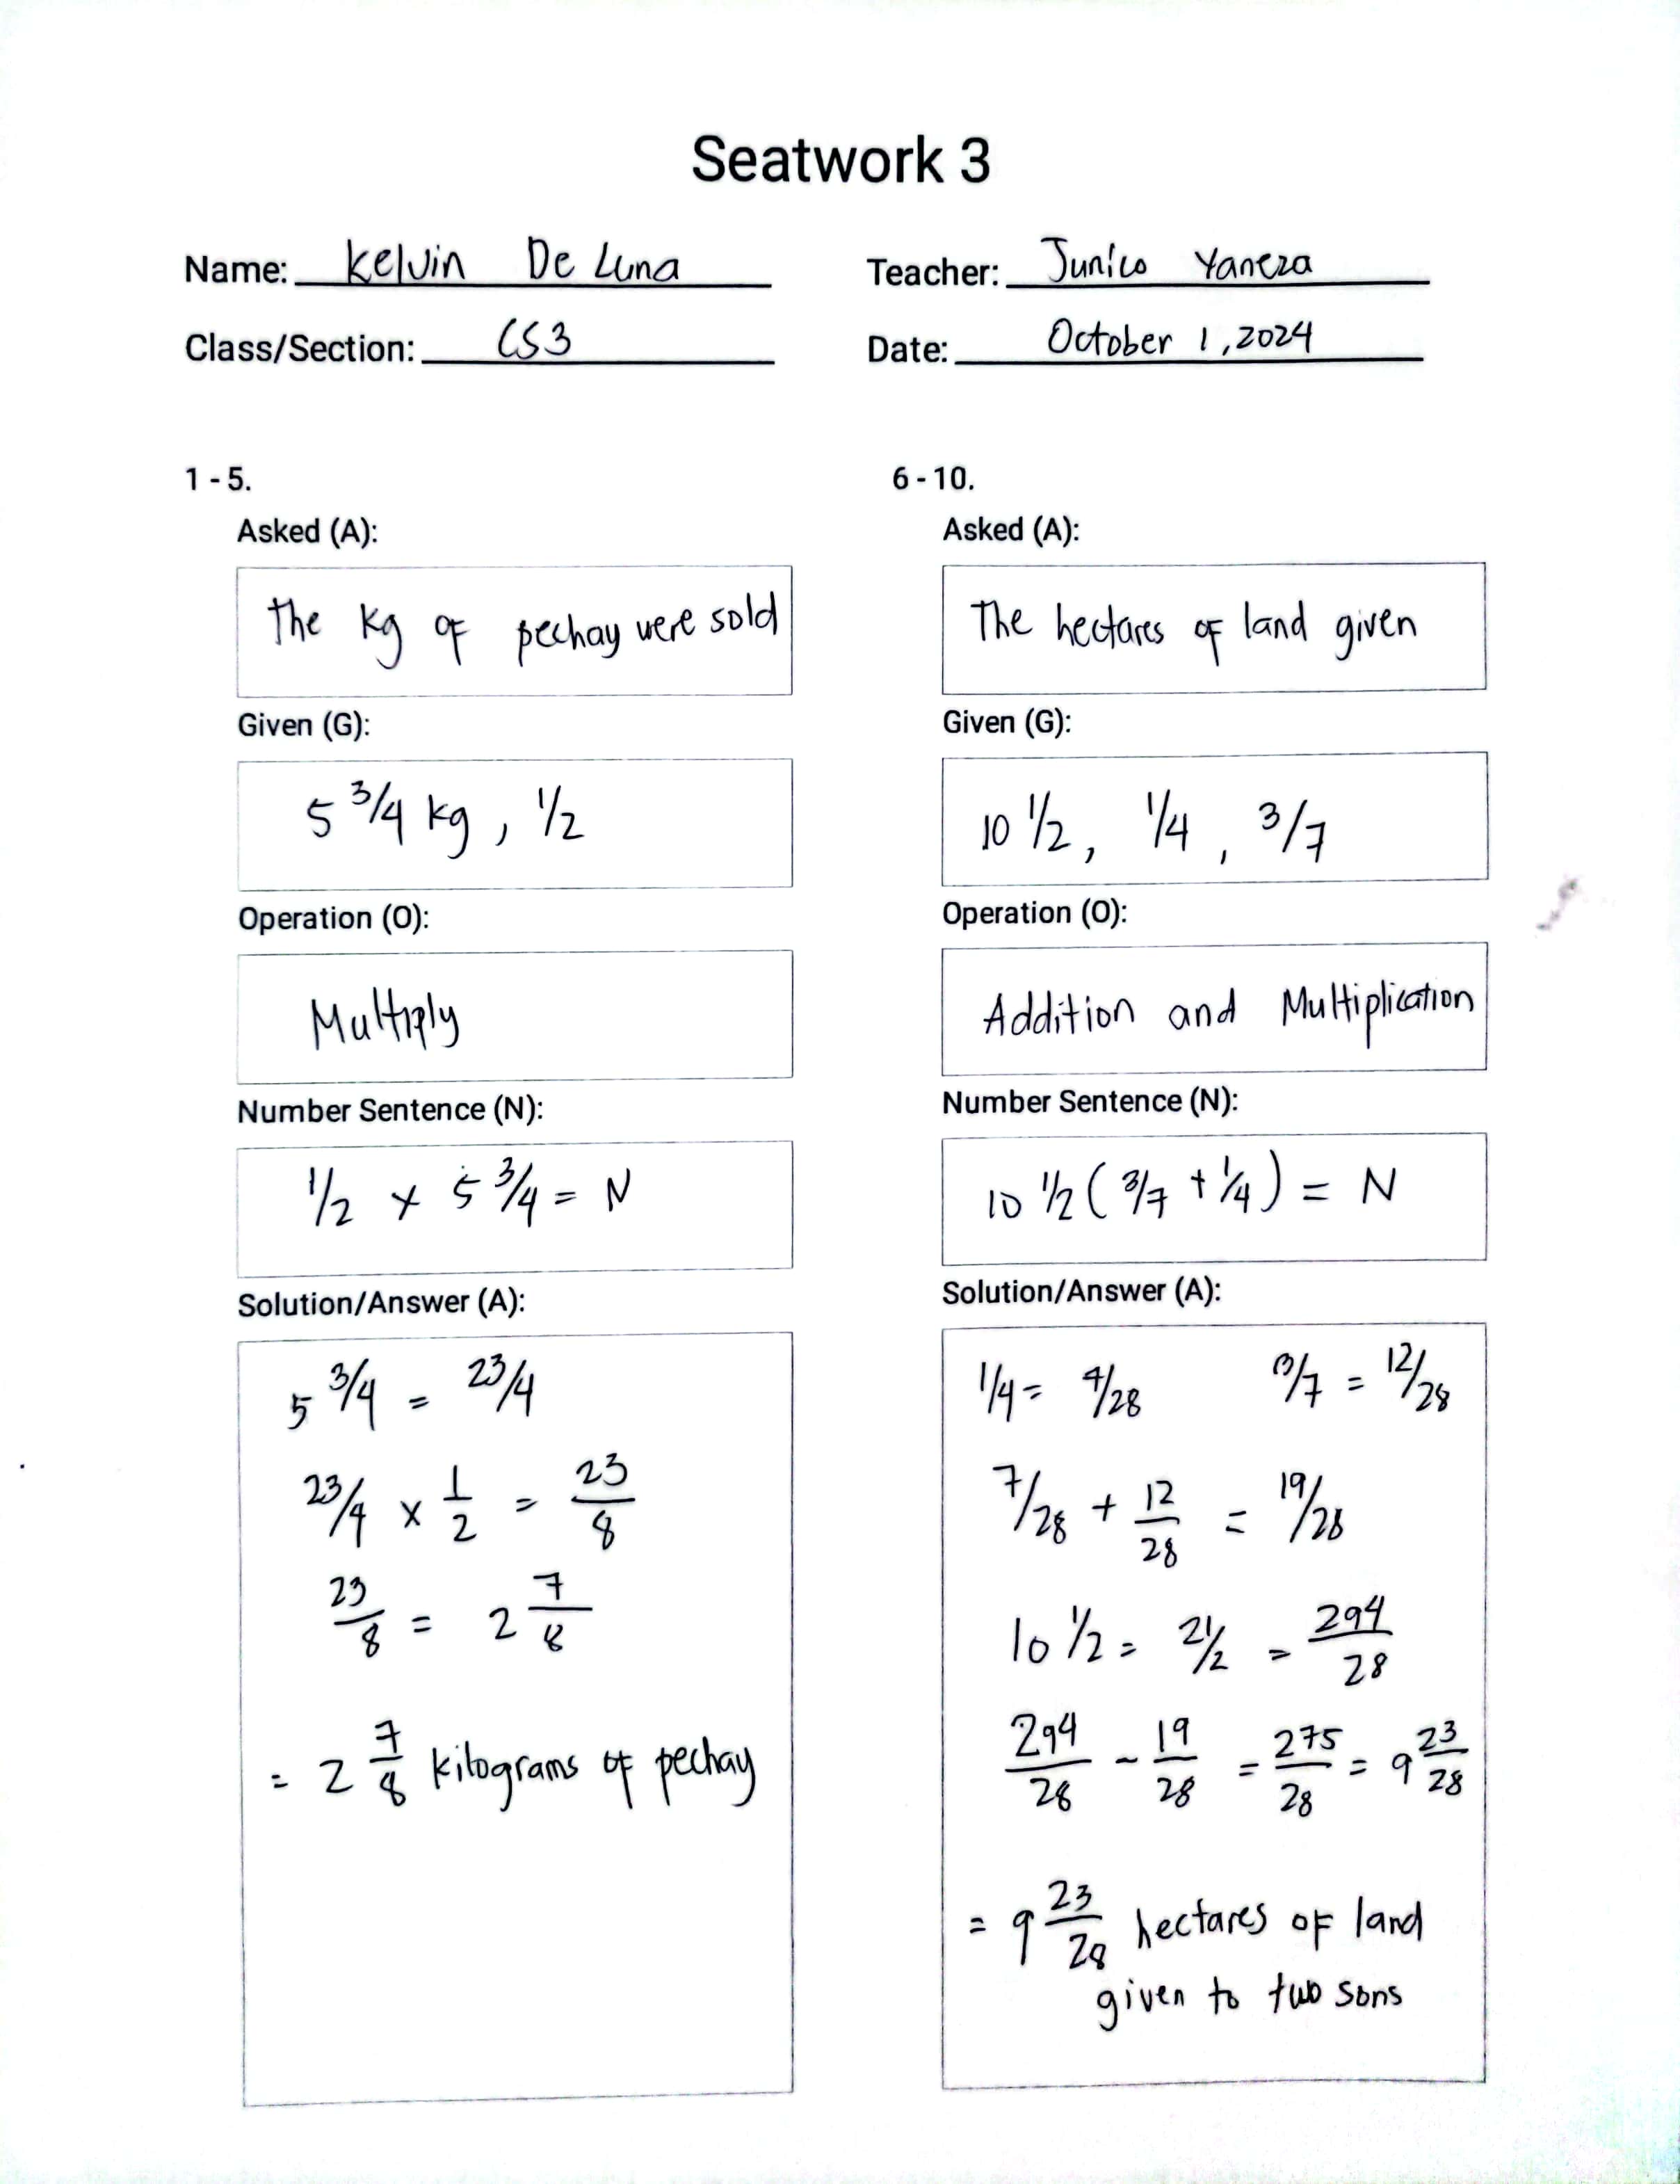 Seatwork 3
Name: Kelvin De Luna
Teacher: Junico Yaneza
Class/Section: CS3
Date: October 1, 2024
1 - 5.
Asked (A):
The kg of pechay were sold
Given (G):
5 3/4 kg, 1/2
Operation (O):
Multiply
Number Sentence (N):
1/2 x 5 3/4 = N
Solution/Answer (A):
5 3/4 = 23/4
23/4 x 1/2 = 23/8
23/8 = 2 7/8
= 2 7/8 kilograms of pechay
6 - 10.
Asked (A):
The hectares of land given
Given (G):
10 1/2, 1/4, 3/7
Operation (O):
Addition and Multiplication
Number Sentence (N):
10 1/2 (3/7 + 1/4) = N
Solution/Answer (A):
1/4 = 7/28 3/7 = 12/28
7/28 + 12/28 = 19/28
10 1/2 = 21/2 = 294/28
294/28 - 19/28 = 275/28 = 9 23/28
= 9 23/28 hectares of land
given to two sons